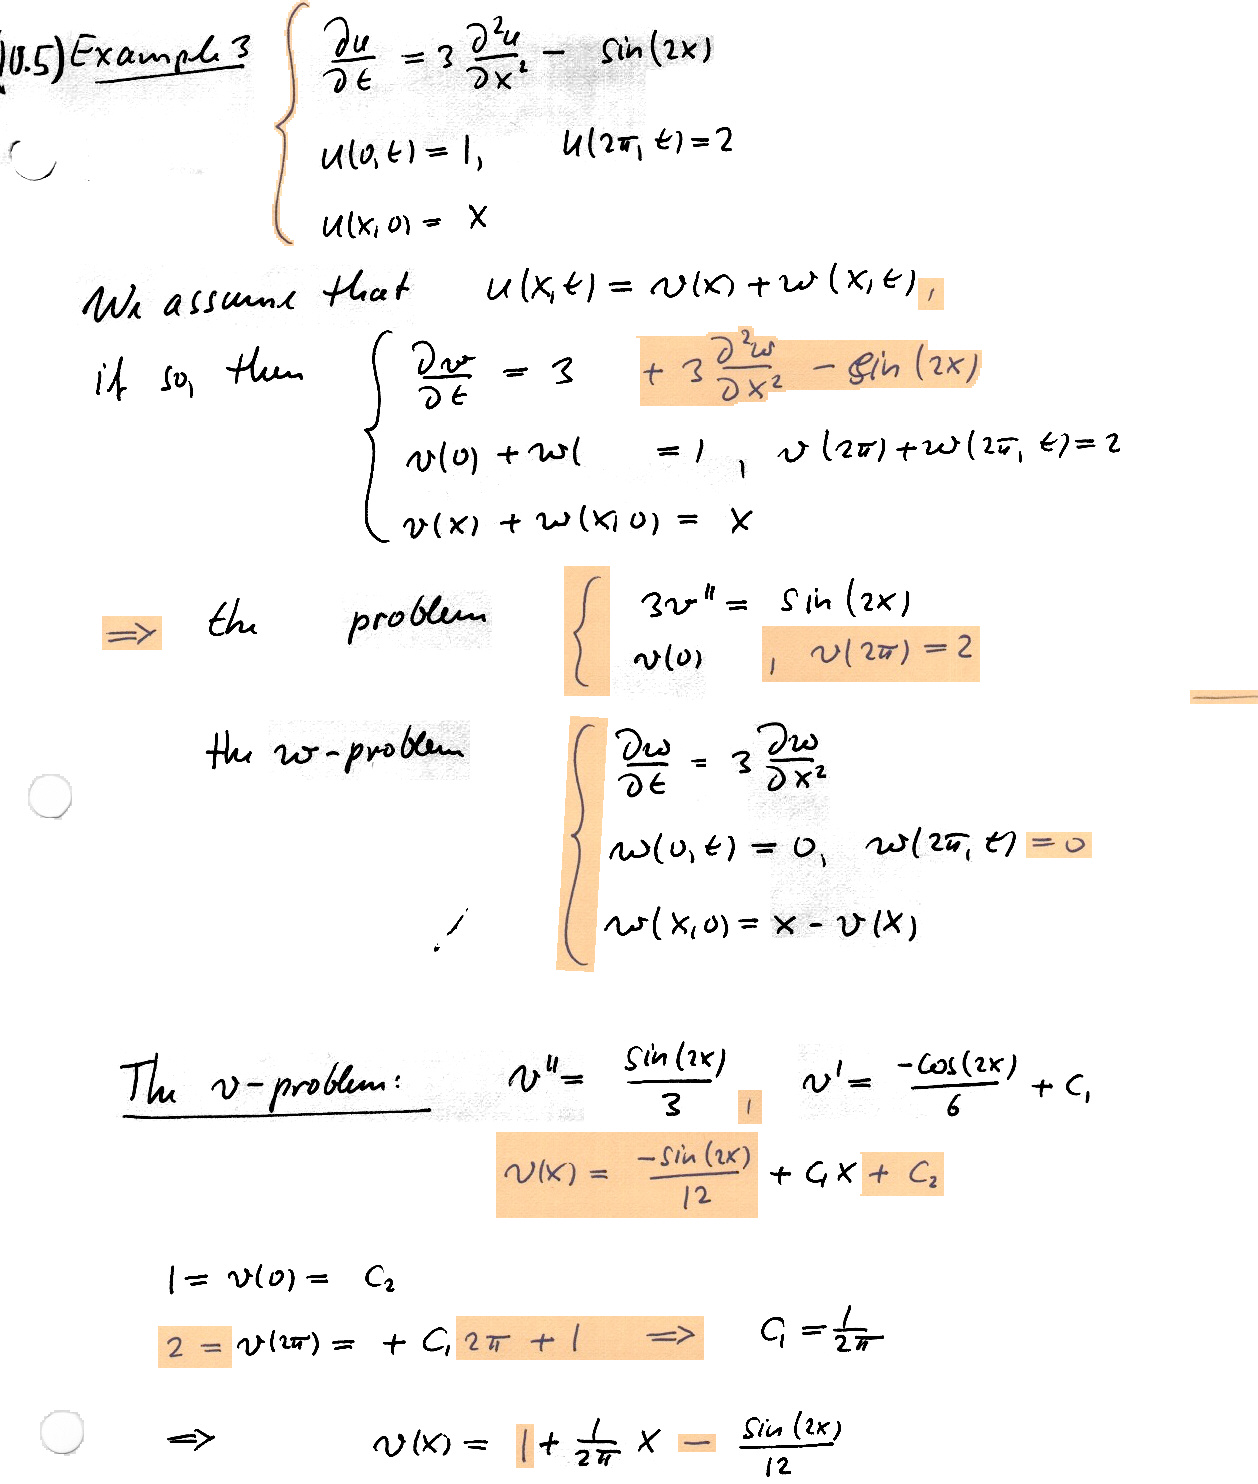 10.5) Example 3 { ∂u/∂t = 3 ∂²u/∂x² - sin(2x)
u(0,t) = 1, u(2π, t) = 2
u(x,0) = x
We assume that u(x,t) = v(x) + w(x,t),
if so, then { ∂w/∂t = 3 + 3 ∂²w/∂x² - sin(2x)
v(0) + w( = 1, v(2π) + w(2π, t) = 2
v(x) + w(x,0) = x
⇒ the problem { 3v'' = sin(2x)
v(0) , v(2π) = 2
the w-problem { ∂w/∂t = 3 ∂w/∂x²
w(0,t) = 0, w(2π, t) = 0
w(x,0) = x - v(x)
The v-problem: v'' = sin(2x)/3, v' = -cos(2x)/6 + C₁
v(x) = -sin(2x)/12 + C₁x + C₂
1 = v(0) = C₂
2 = v(2π) = + C₁ 2π + 1 ⇒ C₁ = 1/2π
⇒ v(x) = 1 + 1/2π x - sin(2x)/12